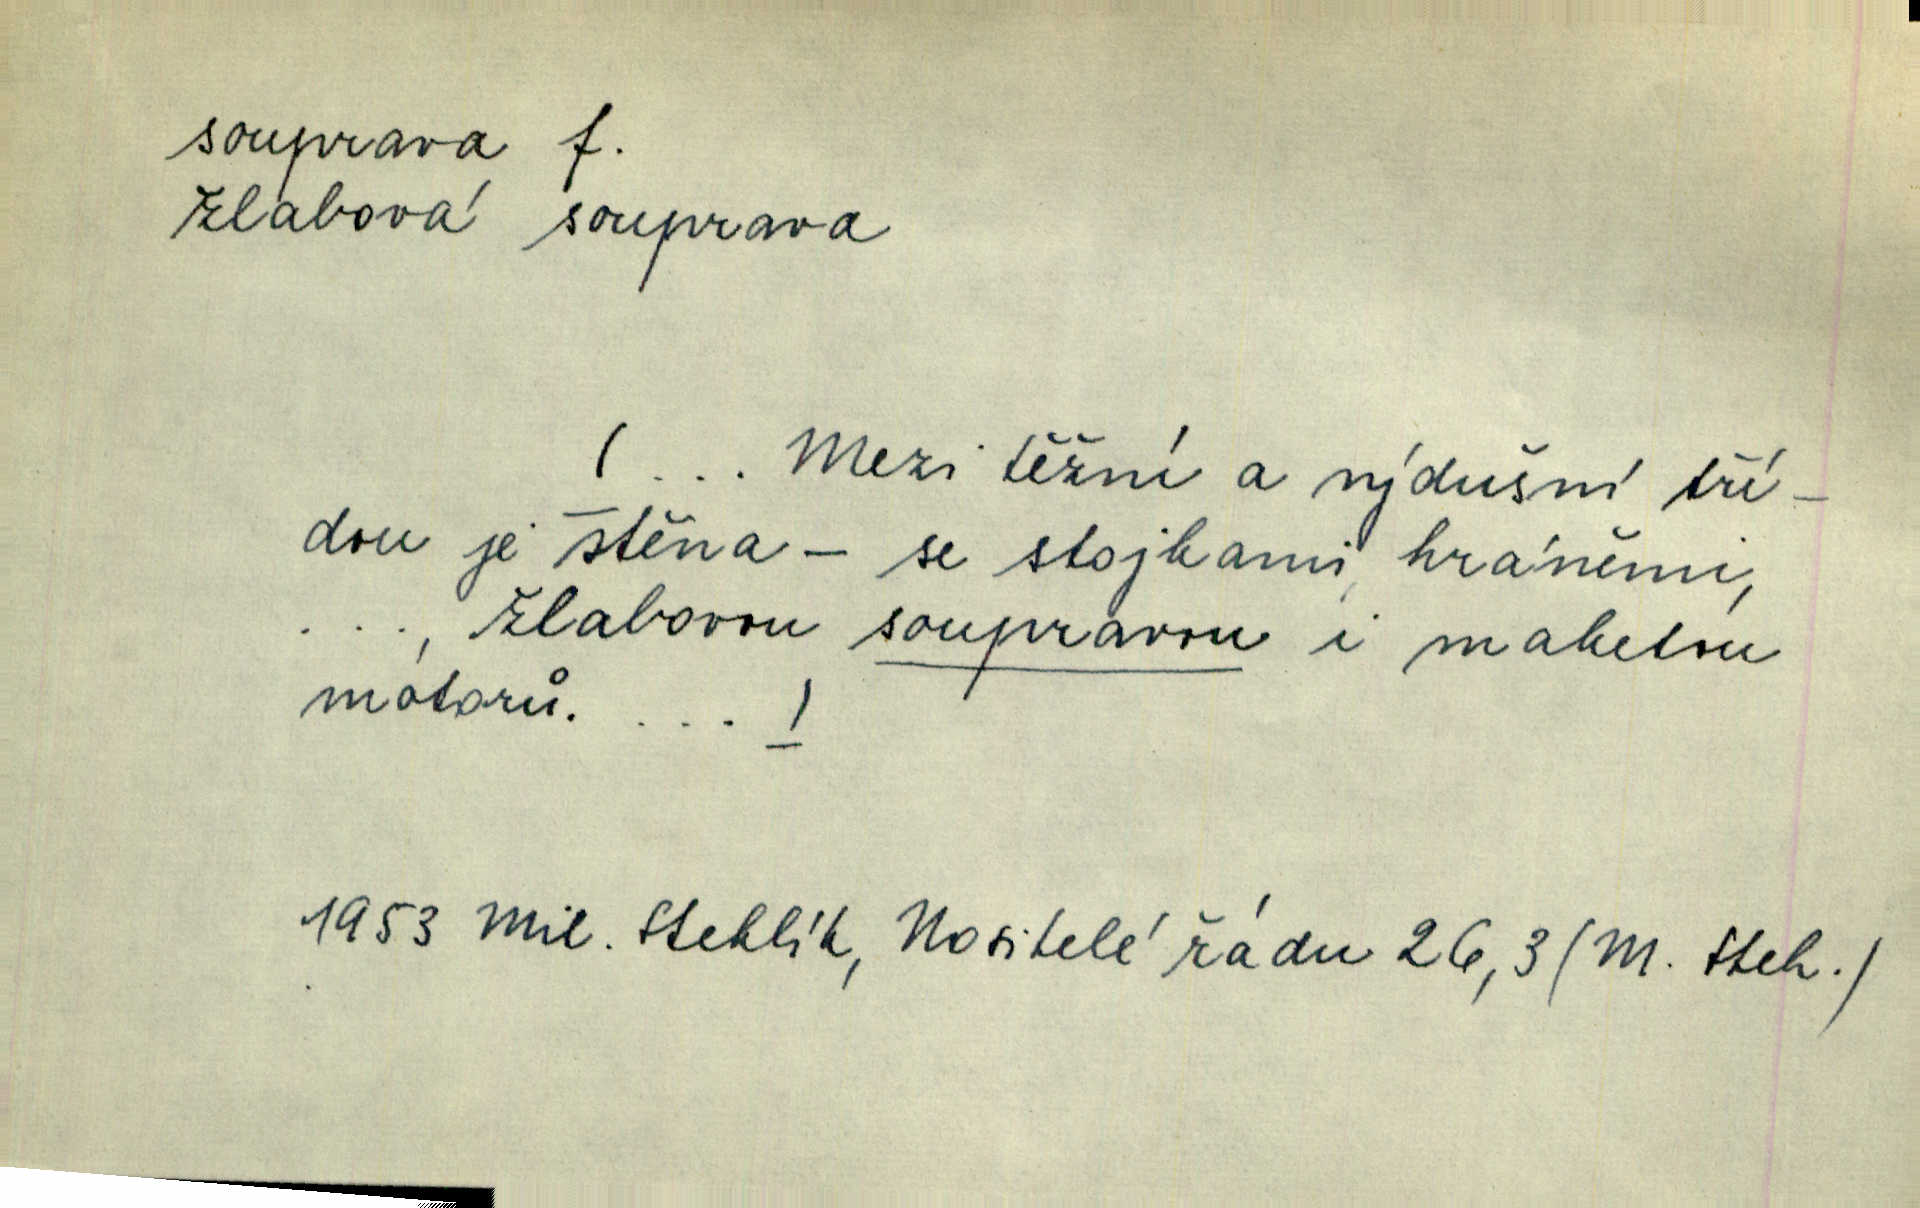 souprava f.
žlabová souprava
(... Mezi těžní a výdušní tří-
dou je stěna – se stojkami, hráněmi,
..., žlabovou soupravou i maketou
motorů. ... )
1953 Mil. Steklík, Nositelé řádu 26,3 (M. Stek.)